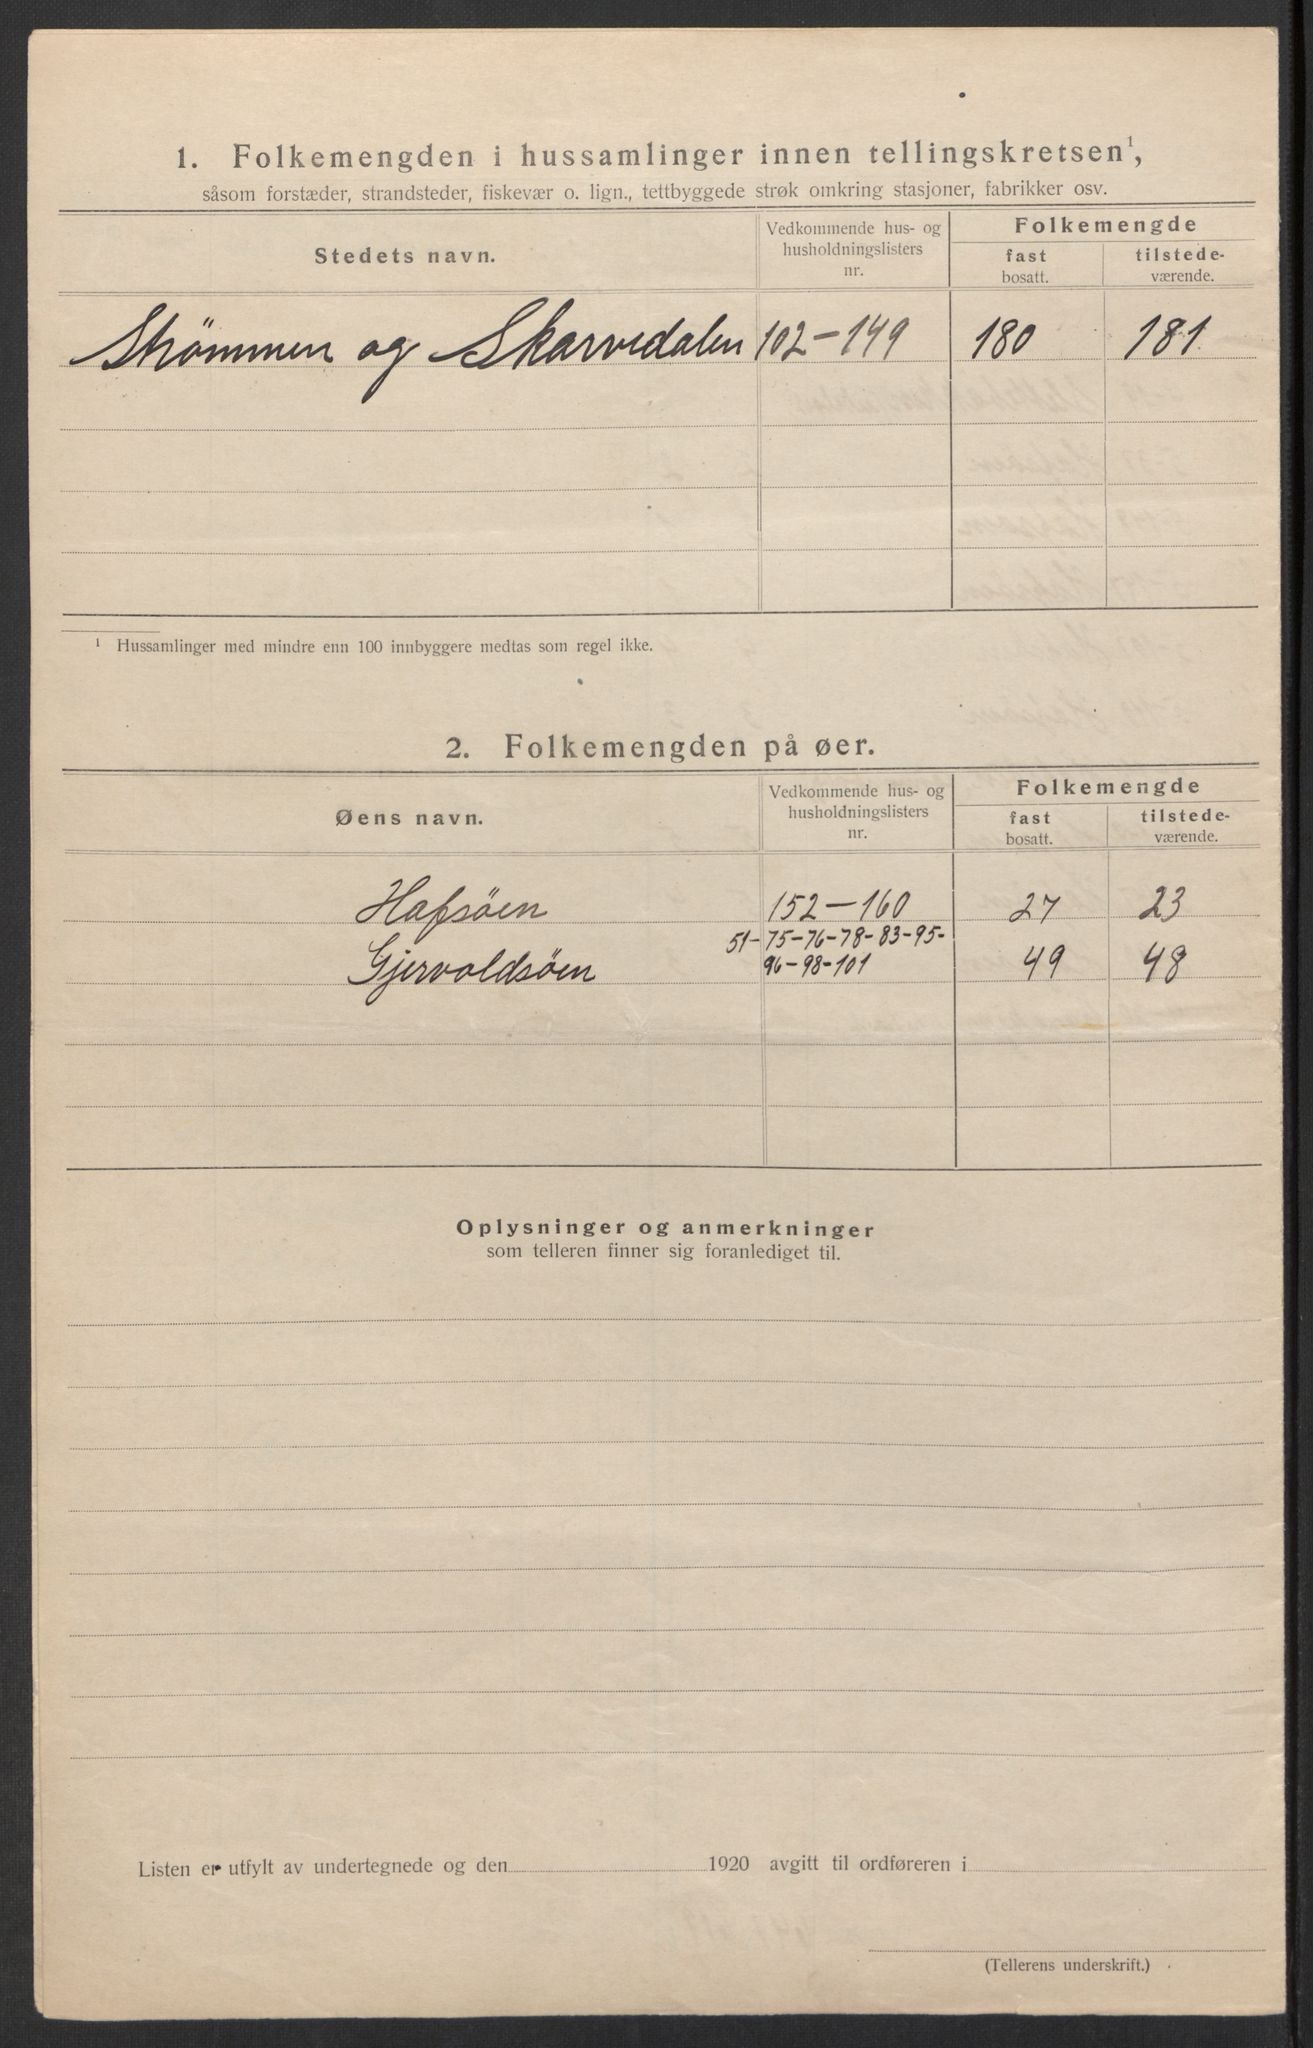 1. Folkemengden i hussamlinger innen tellingskretsen¹,
såsom forstæder, strandsteder, fiskevær o. lign., tettbyggede strøk omkring stasjoner, fabrikker osv.
Stedets navn.
Vedkommende hus- og husholdningslisters nr.
Folkemengde
fast bosatt.
tilstede- værende.
Strömmen og Skarvedalen 102-149 180 181
¹ Hussamlinger med mindre enn 100 innbyggere medtas som regel ikke.
2. Folkemengden på øer.
Øens navn.
Vedkommende hus- og husholdningslisters nr.
Folkemengde
fast bosatt.
tilstede- værende.
Hafsöen 152-160 27 23
51-75-76-78-83-95-
Gjervoldsöen 96-98-101 49 48
Oplysninger og anmerkninger
som telleren finner sig foranlediget til.
Listen er utfylt av undertegnede og den 1920 avgitt til ordføreren i
(Tellerens underskrift.)